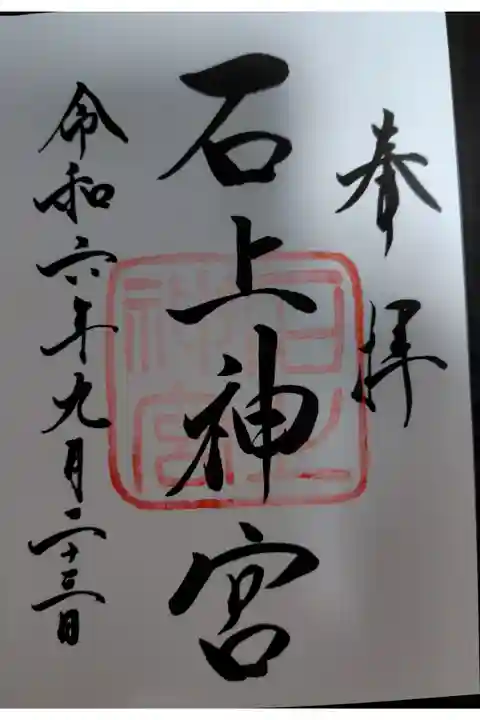 奉拝
石上神宮
石上神宮
令和六年九月二十三日